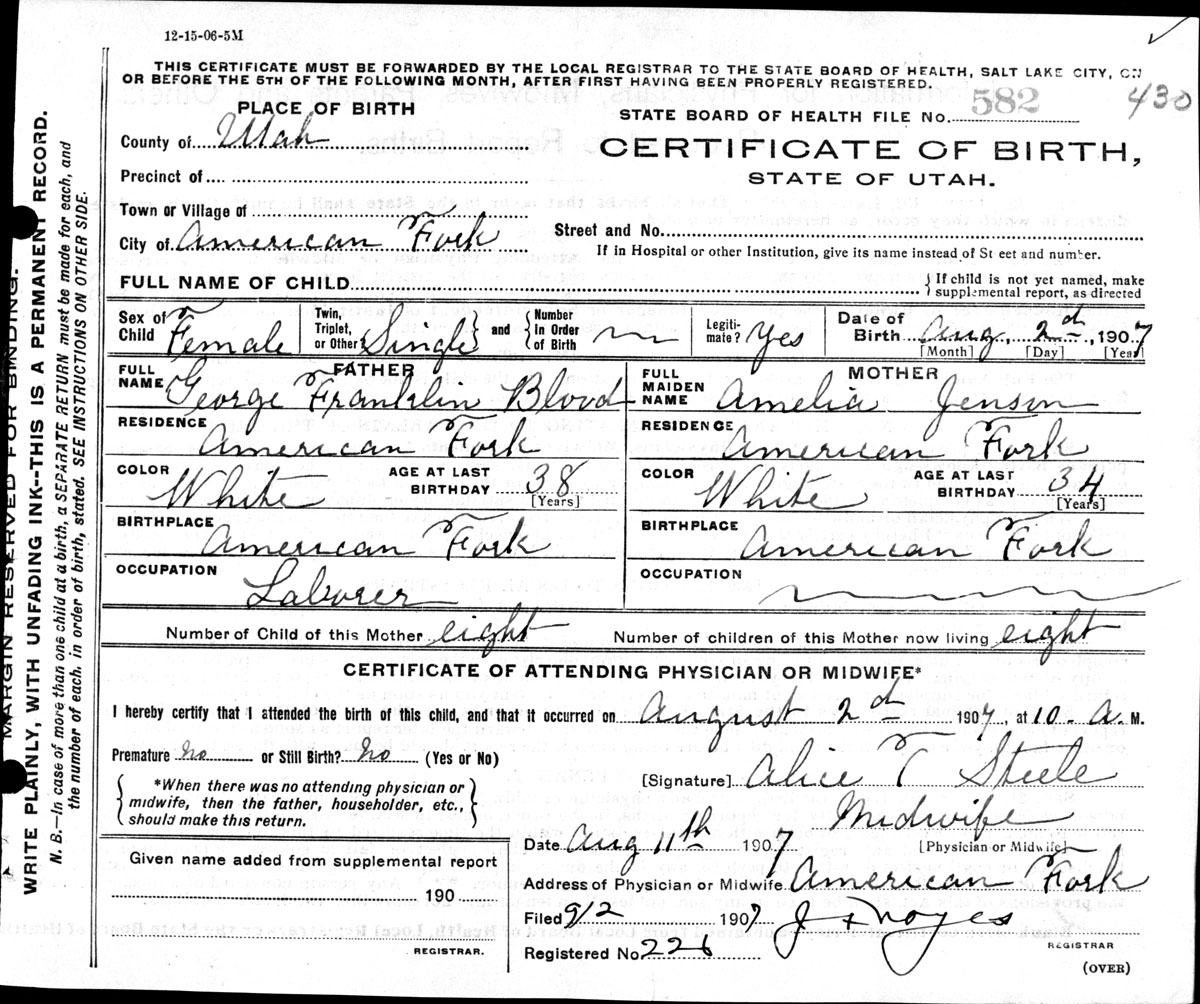 12-15-06-5M
THIS CERTIFICATE MUST BE FORWARDED BY THE LOCAL REGISTRAR TO THE STATE BOARD OF HEALTH, SALT LAKE CITY, ON
OR BEFORE THE 5TH OF THE FOLLOWING MONTH, AFTER FIRST HAVING BEEN PROPERLY REGISTERED.
PLACE OF BIRTH
STATE BOARD OF HEALTH FILE No. 582 430
County of Utah
CERTIFICATE OF BIRTH,
STATE OF UTAH.
Precinct of
Town or Village of
City of American Fork
Street and No.
If in Hospital or other Institution, give its name instead of St eet and number.
FULL NAME OF CHILD
If child is not yet named, make
supplemental report, as directed
Sex of Child Female
Twin, Triplet, or Other Single and Number In Order of Birth
Legiti-mate? Yes
Date of Birth Aug 2d, 1907
[Month] [Day] [Year]
FATHER
FULL NAME George Franklin Blood
RESIDENCE American Fork
COLOR White
AGE AT LAST BIRTHDAY 38
[Years]
BIRTHPLACE American Fork
OCCUPATION Laborer
MOTHER
FULL MAIDEN NAME Amelia Jenson
RESIDENCE American Fork
COLOR White
AGE AT LAST BIRTHDAY 34
[Years]
BIRTHPLACE American Fork
OCCUPATION
Number of Child of this Mother eight
Number of children of this Mother now living eight
CERTIFICATE OF ATTENDING PHYSICIAN OR MIDWIFE*
I hereby certify that I attended the birth of this child, and that it occurred on August 2d 1907, at 10 - A M.
Premature No or Still Birth? No (Yes or No)
*When there was no attending physician or
midwife, then the father, householder, etc.,
should make this return.
[Signature] Alice T Steele
Midwife
[Physician or Midwife]
Date Aug 11th 1907
Given name added from supplemental report
190
REGISTRAR.
Address of Physician or Midwife American Fork
Filed 9/2 1907
Noyes
REGISTRAR
Registered No. 226
(OVER)
MARGIN RESERVED FOR BINDING.
WRITE PLAINLY, WITH UNFADING INK--THIS IS A PERMANENT RECORD.
N. B.—In case of more than one child at a birth, a SEPARATE RETURN must be made for each, and
the number of each, in order of birth, stated. SEE INSTRUCTIONS ON OTHER SIDE.